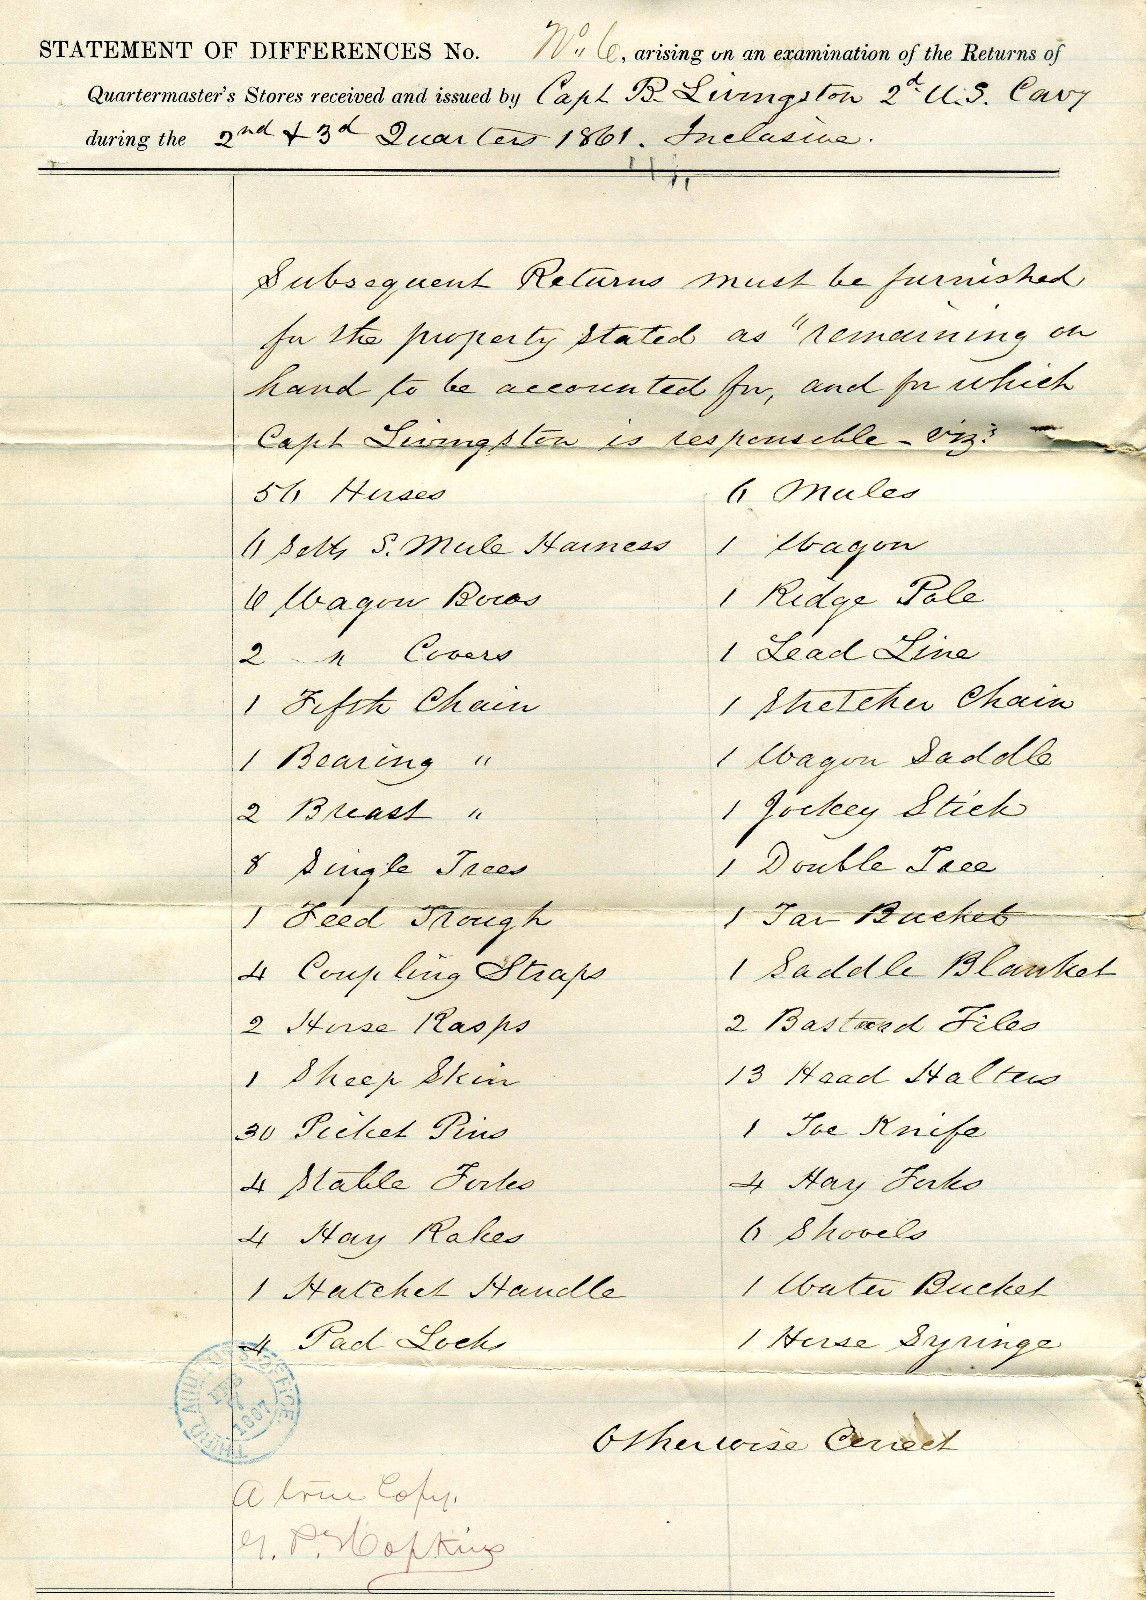 STATEMENT OF DIFFERENCES No. No. 6, arising on an examination of the Returns of
Quartermaster's Stores received and issued by Capt B. Livingston 2d U.S. Cavy
during the 2nd & 3d Quarters 1861. Inclusive.
Subsequent Returns must be furnished
for the property stated as "remaining on
hand to be accounted for, and for which
Capt Livingston is responsible - viz:
56 Horses 6 Mules
6 Setts S. Mule Harness 1 Wagon
6 Wagon Bows 1 Ridge Pole
2 " Covers 1 Lead Line
1 Fifth Chain 1 Stretcher Chain
1 Bearing " 1 Wagon Saddle
2 Breast " 1 Jockey Stick
8 Single Trees 1 Double Tree
1 Feed Trough 1 Tar Bucket
4 Coupling Straps 1 Saddle Blanket
2 Horse Rasps 2 Bastard Files
1 Sheep Skin 13 Head Halters
30 Picket Pins 1 Toe Knife
4 Stable Forks 4 Hay Forks
4 Hay Rakes 6 Shovels
1 Hatchet Handle 1 Water Bucket
4 Pad Locks 1 Horse Syringe
THIRD AUDITOR'S OFFICE
1887
Otherwise Correct
A true Copy.
P. Hopkins